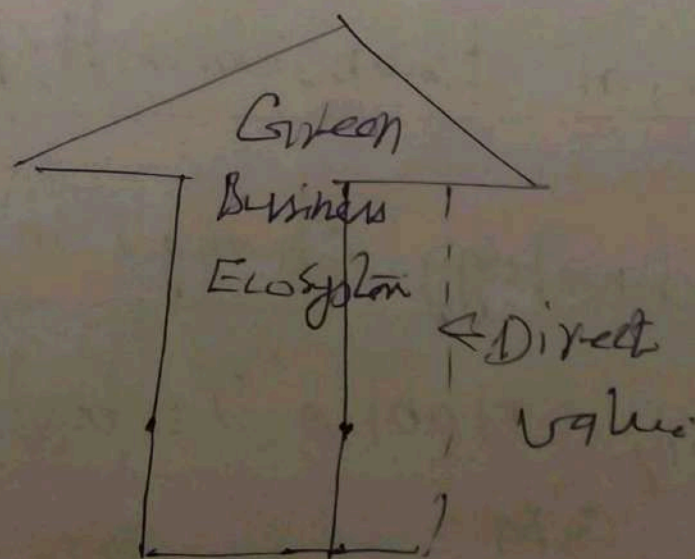 Green
Bussiness
Ecosystem
← Direct
value